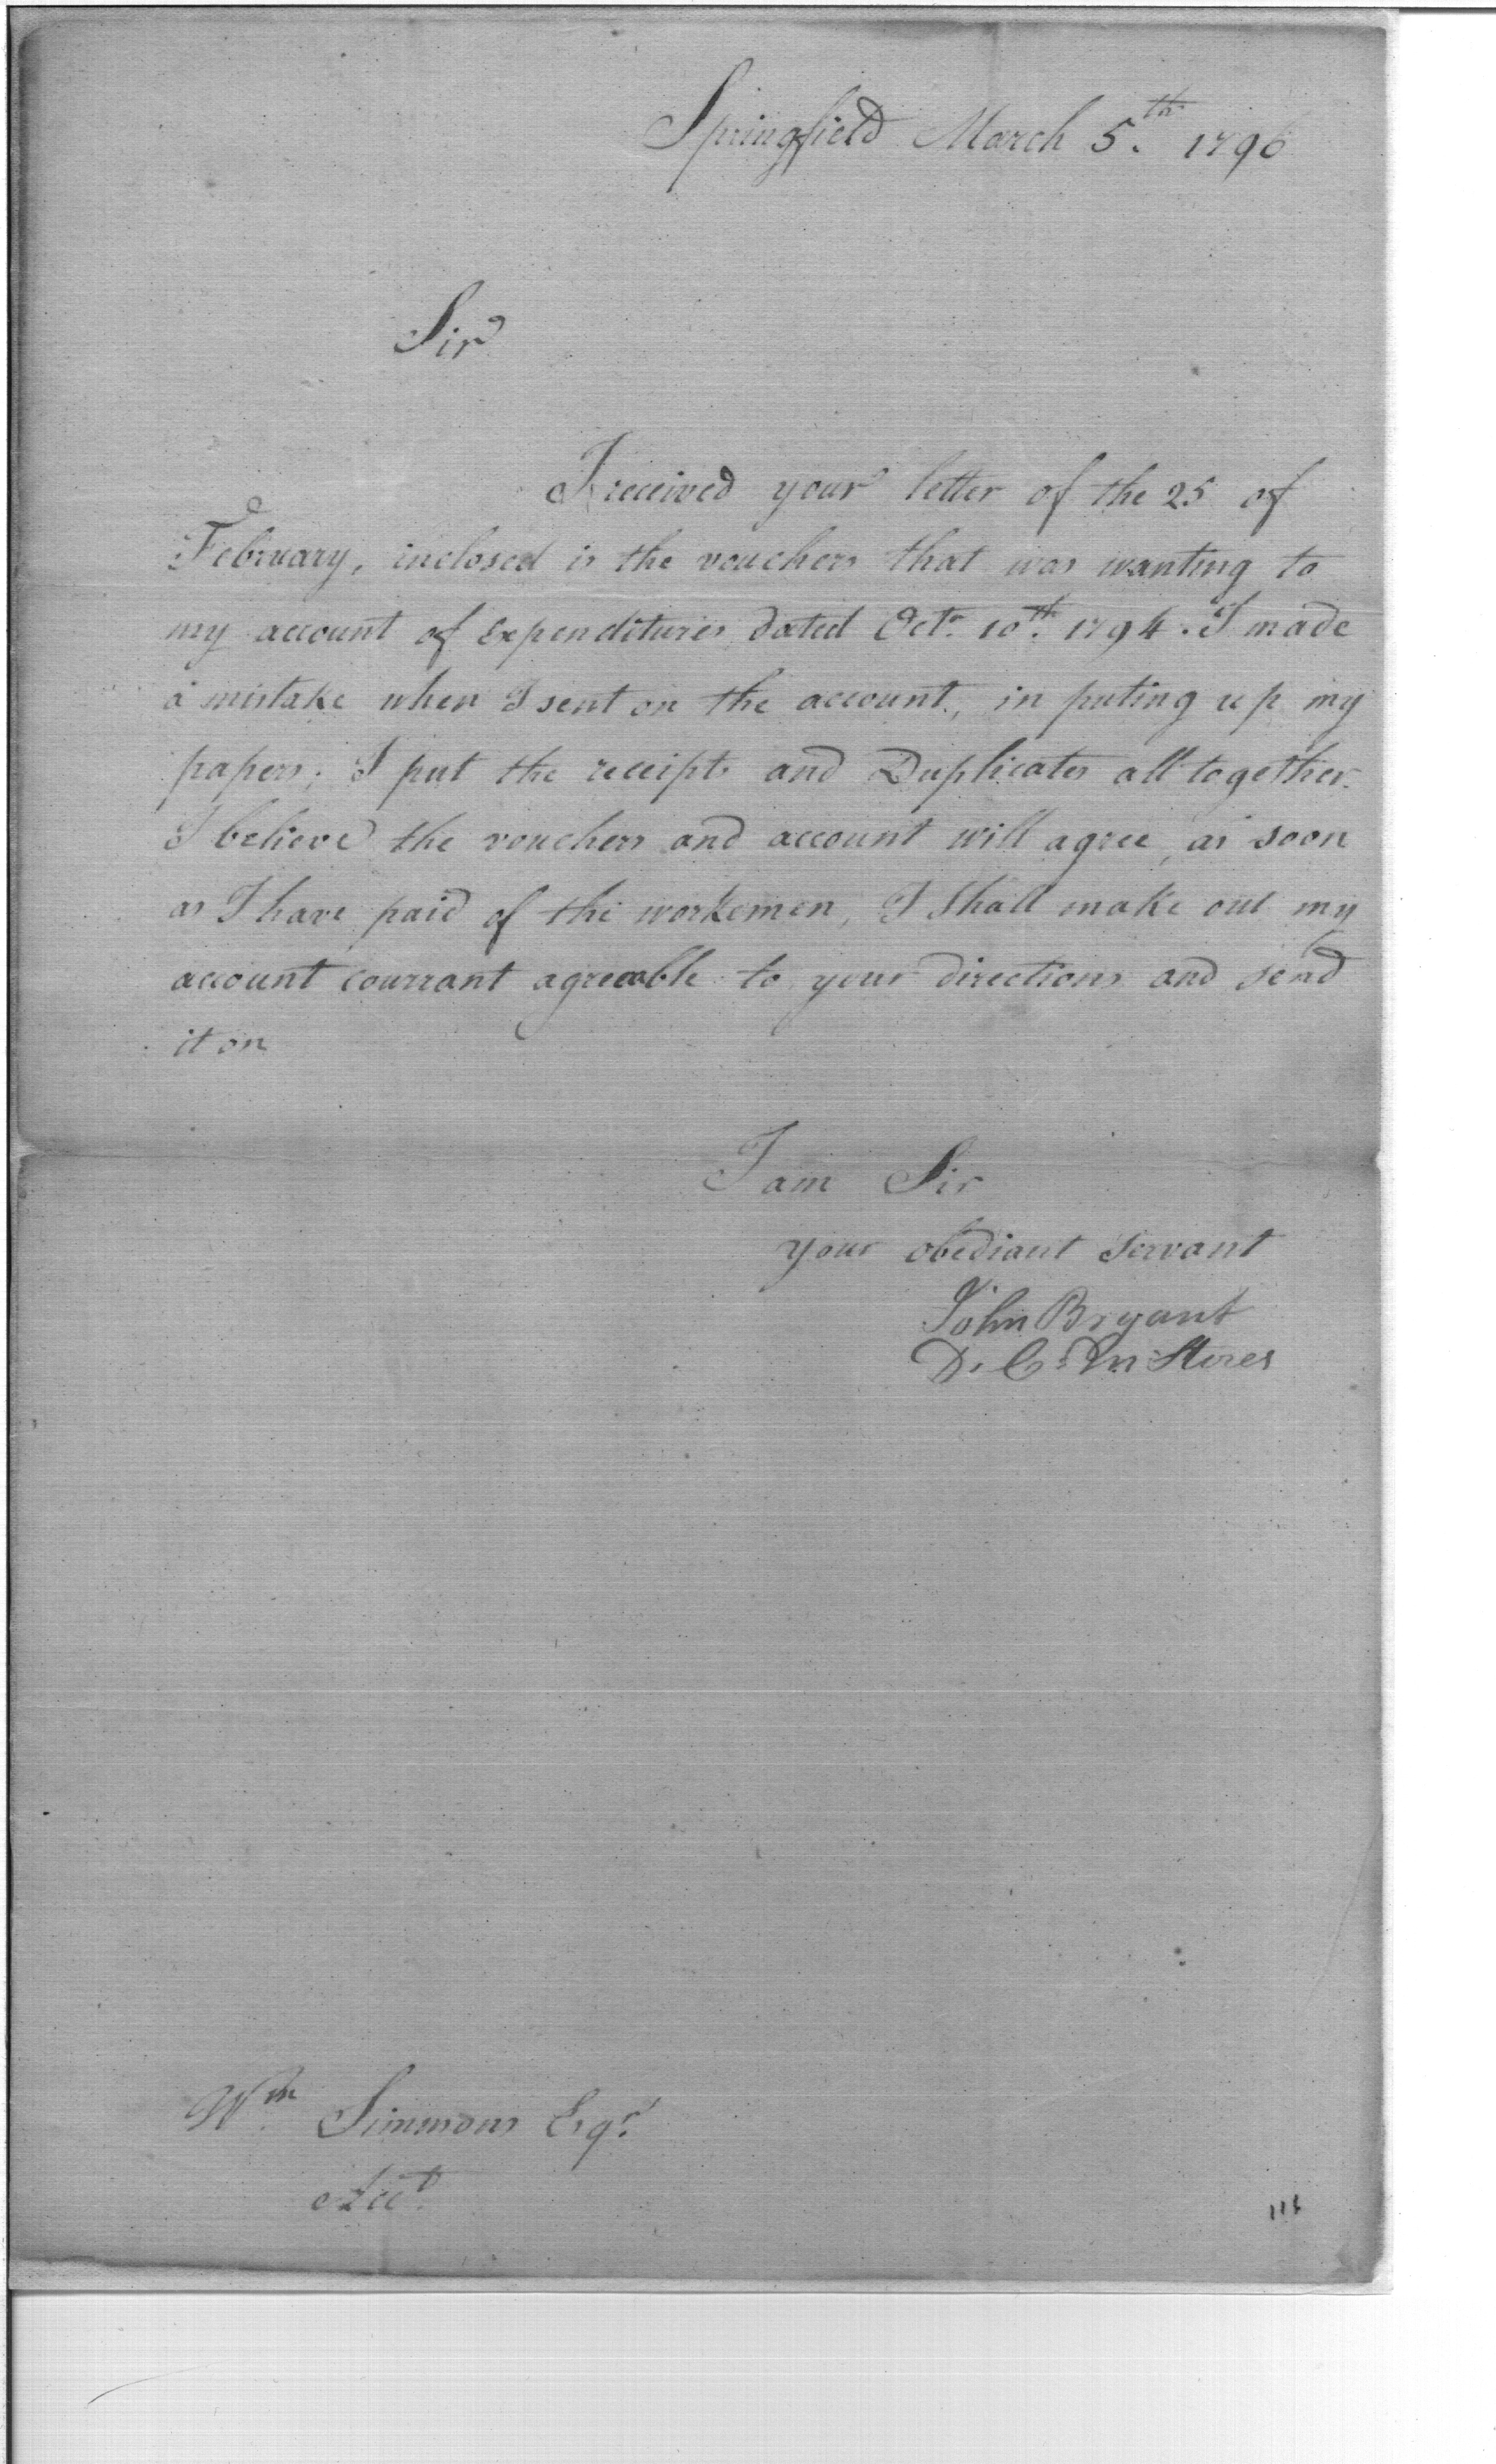 Springfield March 5.th 1796
Sir
I received your letter of the 25 of
February, inclosed is the vouchers that was wanting to
my account of Expenditures dated Octr. 10th. 1794. I made
a mistake when I sent on the account, in puting up my
papers; I put the receipts and Duplicates all together.
I believe the vouchers and account will agree, as soon
as I have paid of the workemen, I shall make out my
account currant agreeable to your directions and send
it on
I am Sir
your obediant servant
John Bryant
D. C. M Stores
Wm. Simmons Esqr.
Acct.